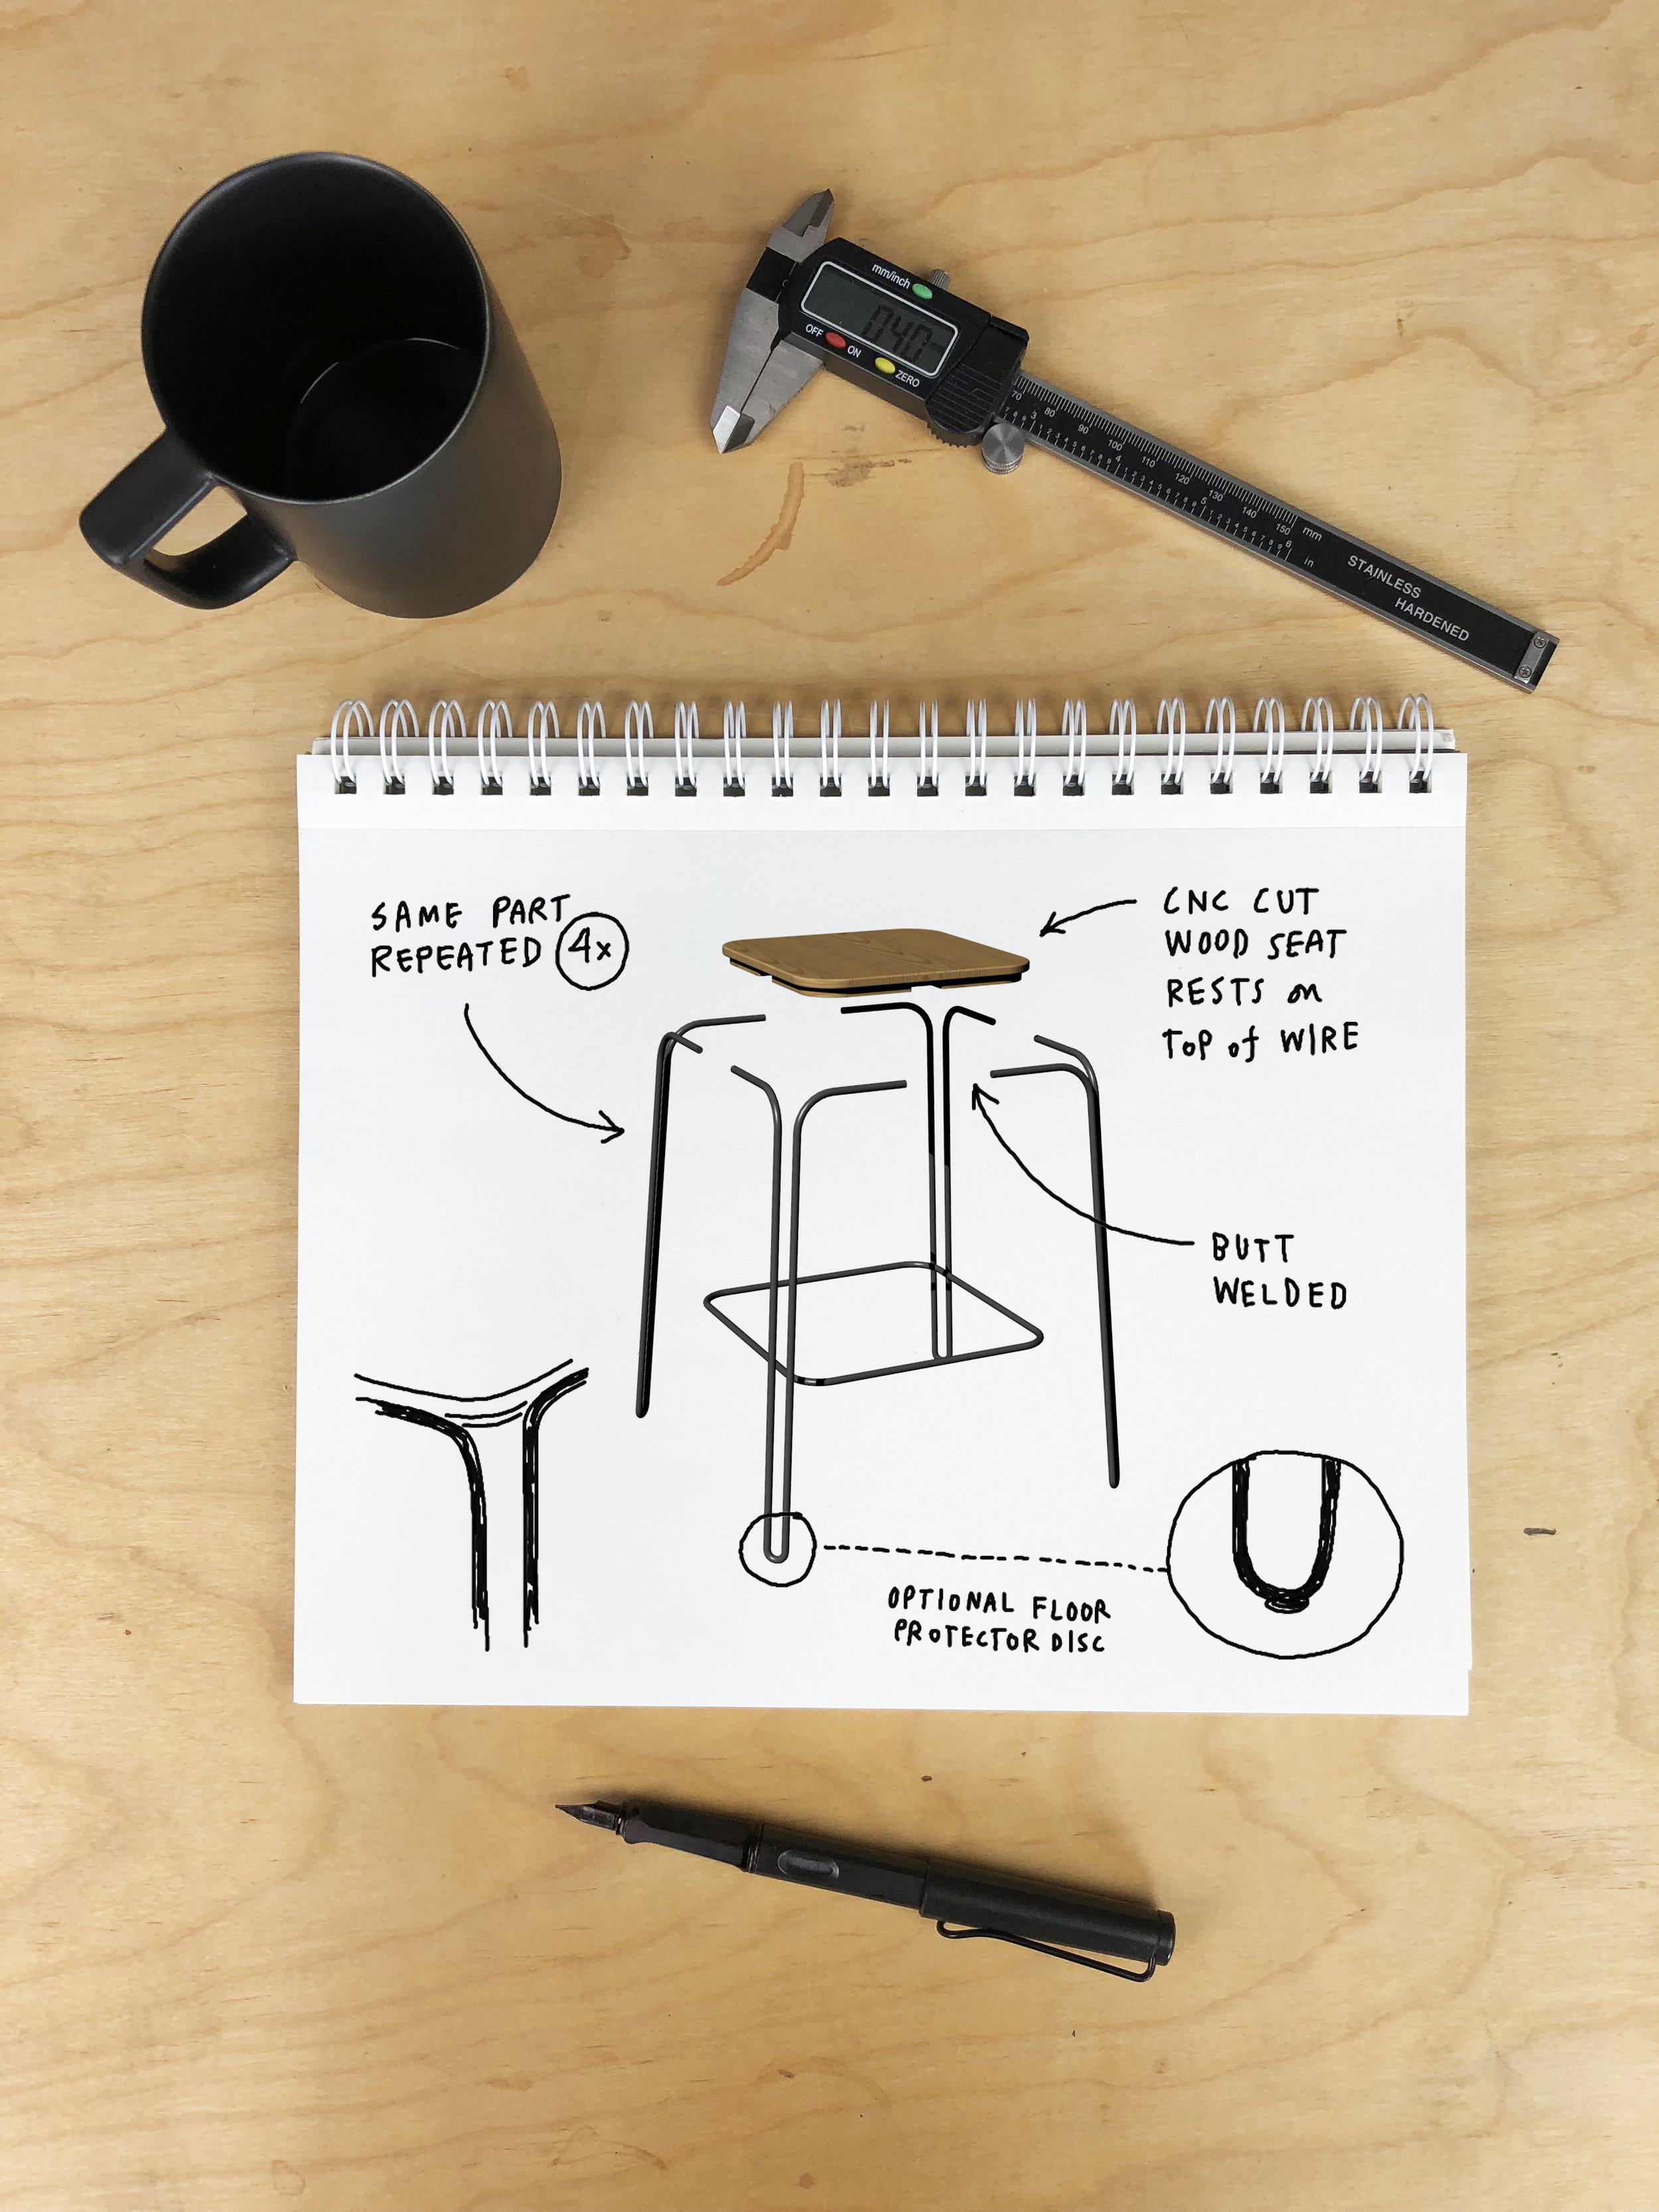 mm/inch
040
OFF
ON
ZERO
70 80 90 100 110 120 130 140 150 mm
3 4 5 6 in
STAINLESS
HARDENED
SAME PART
REPEATED 4x
CNC CUT
WOOD SEAT
RESTS on
TOP of WIRE
BUTT
WELDED
OPTIONAL FLOOR
PROTECTOR DISC